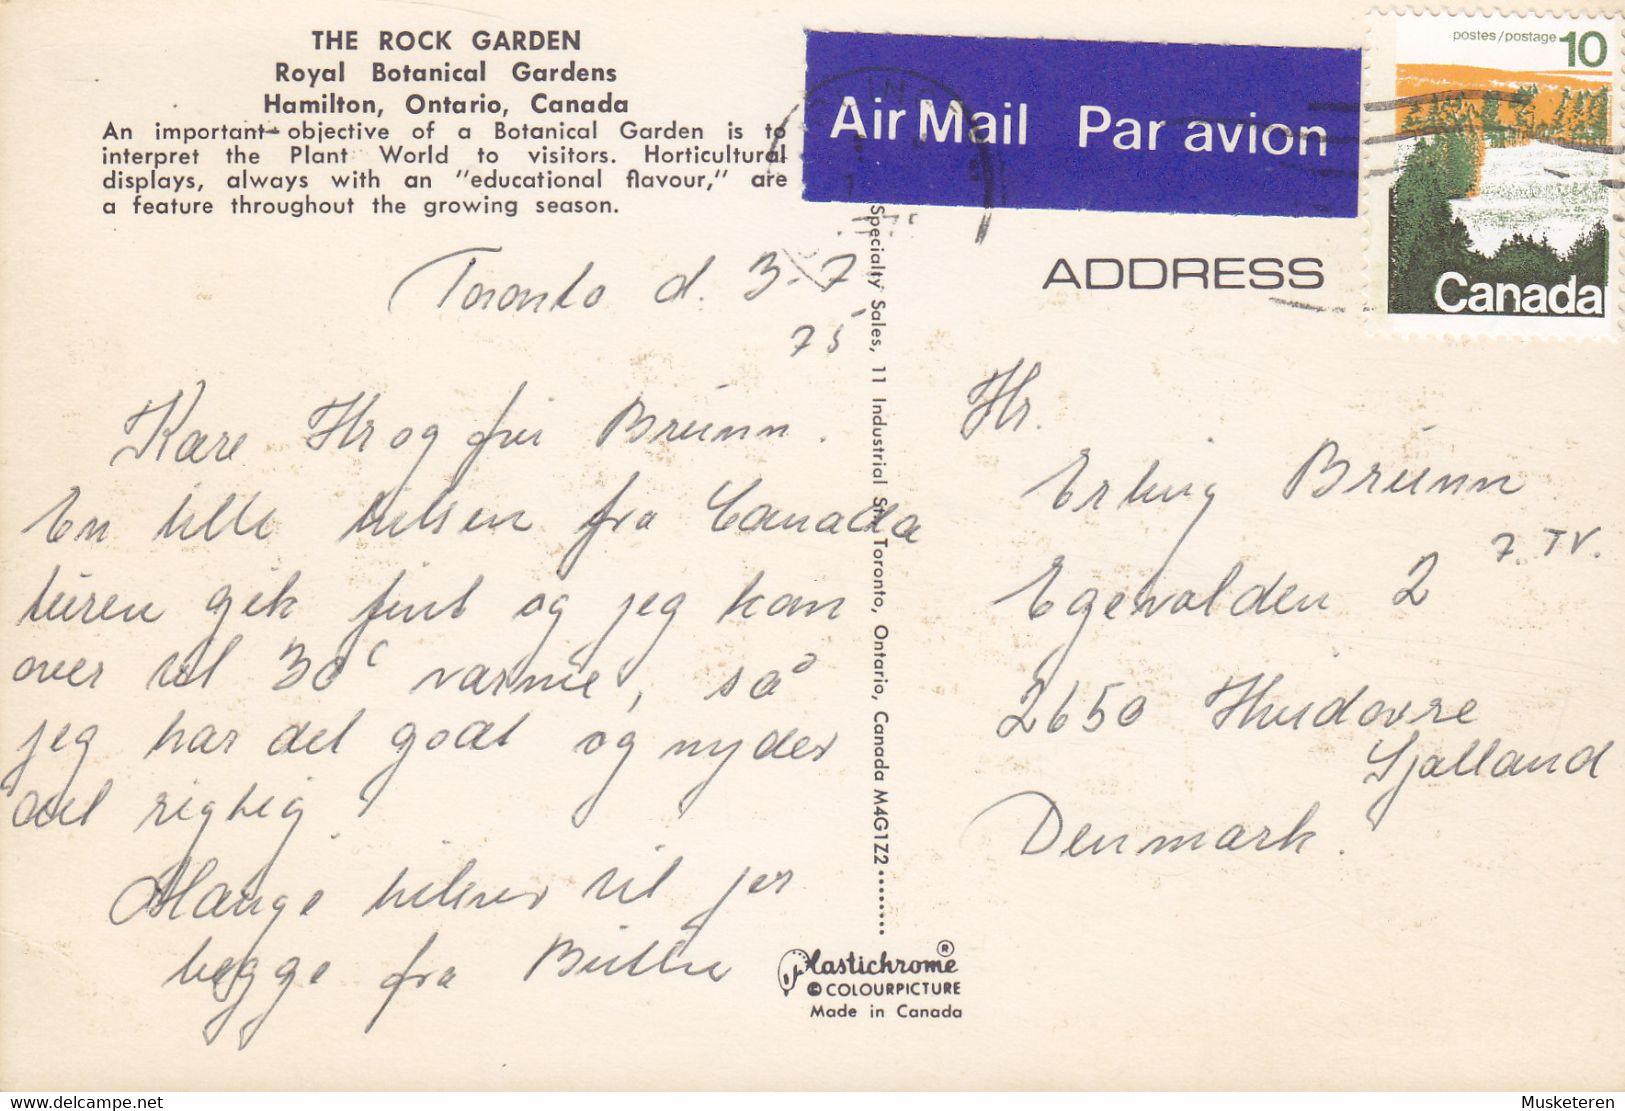 THE ROCK GARDEN
Royal Botanical Gardens
Hamilton, Ontario, Canada
An important objective of a Botanical Garden is to
interpret the Plant World to visitors. Horticultural
displays, always with an "educational flavour," are
a feature throughout the growing season.
Toronto d. 3-7
75
Kære Hr og fru Brünn.
En lille hilsen fra Canada
turen gik fint og jeg kan
over til 30° varme, så
jeg har det godt og nyder
det rigtig.
Mange hilsner til jer
begge fra
Specialty Sales, 11 Industrial St., Toronto, Ontario, Canada M4G1Z2
Plastichrome ®
© COLOURPICTURE
Made in Canada
Air Mail Par avion
postes/postage 10
Canada
ADDRESS
Hr.
Erling Brünn
Egevolden 2 7. TV.
2650 Hvidovre
Sjælland
Denmark.
Musketeren
delcampe.net